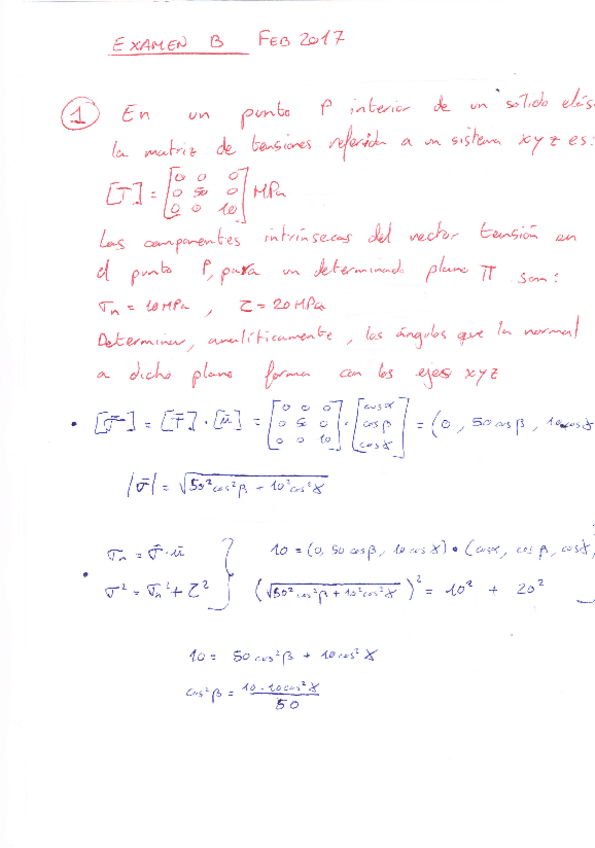 EXAMEN B FEB 2017
① En un punto P interior de un sólido elás
la matriz de tensiones referida a un sistema xyz es:
[T] = [0 0 0; 0 50 0; 0 0 10] MPa
Las componentes intrínsecas del vector tensión en
el punto P, para un determinado plano π son:
σn = 10 MPa , τ = 20 MPa
Determinar, analíticamente, los ángulos que la normal
a dicho plano forma con los ejes xyz
• [σ̄] = [T] · [ū] = [0 0 0; 0 50 0; 0 0 10] · [cosα; cosβ; cosγ] = (0, 50 cosβ, 10 cosγ
|σ̄| = √50² cos²β + 10² cos²γ
σn = σ̄ · ū } 10 = (0, 50 cosβ, 10 cosγ) • (cosα, cosβ, cosγ)
• σ² = σn² + τ² } (√50² cos²β + 10² cos²γ)² = 10² + 20²
10 = 50 cos²β + 10 cos²γ
cos²β = 10 - 10 cos²γ / 50